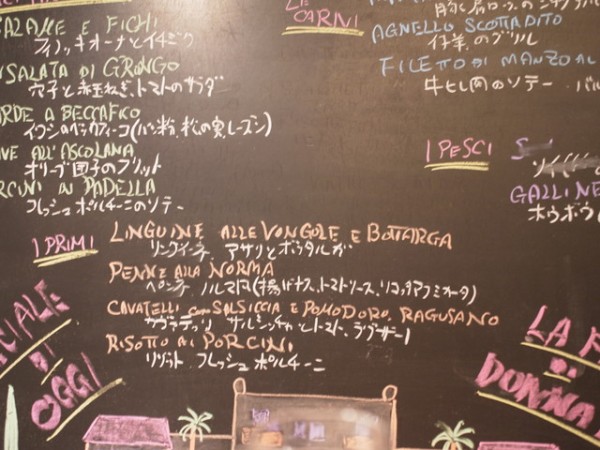 SALAME E FICHI
フィノッキオーナとイチジク
INSALATA DI GRONGO
穴子と赤玉ねぎ、トマトのサラダ
SARDE A BECCAFICO
イワシのベッカフィーコ(パン粉、松の実、レーズン)
OLIVE ALL'ASCOLANA
オリーブ団子のフリット
PORCINI IN PADELLA
フレッシュポルチーニのソテー
I PRIMI
LINGUINE ALLE VONGOLE E BOTTARGA
リングイーネ アサリとボッタルガ
PENNE ALLA NORMA
ペンネ ノルマ風(揚げナス、トマトソース、リコッタアフミカータ)
CAVATELLI con SALSICCIA E POMODORO, RAGUSANO
カヴァテッリ サルシッチャとトマト、ラグザーノ
RISOTTO AI PORCINI
リゾット フレッシュ ポルチーニ
LE CARNI
AGNELLO SCOTTADITO
仔羊のグリル
FILETTO DI MANZO AL
牛ヒレ肉のソテー バル
I PESCI
GALLINE
ホウボウ
DI OGGI
LA
DONNA